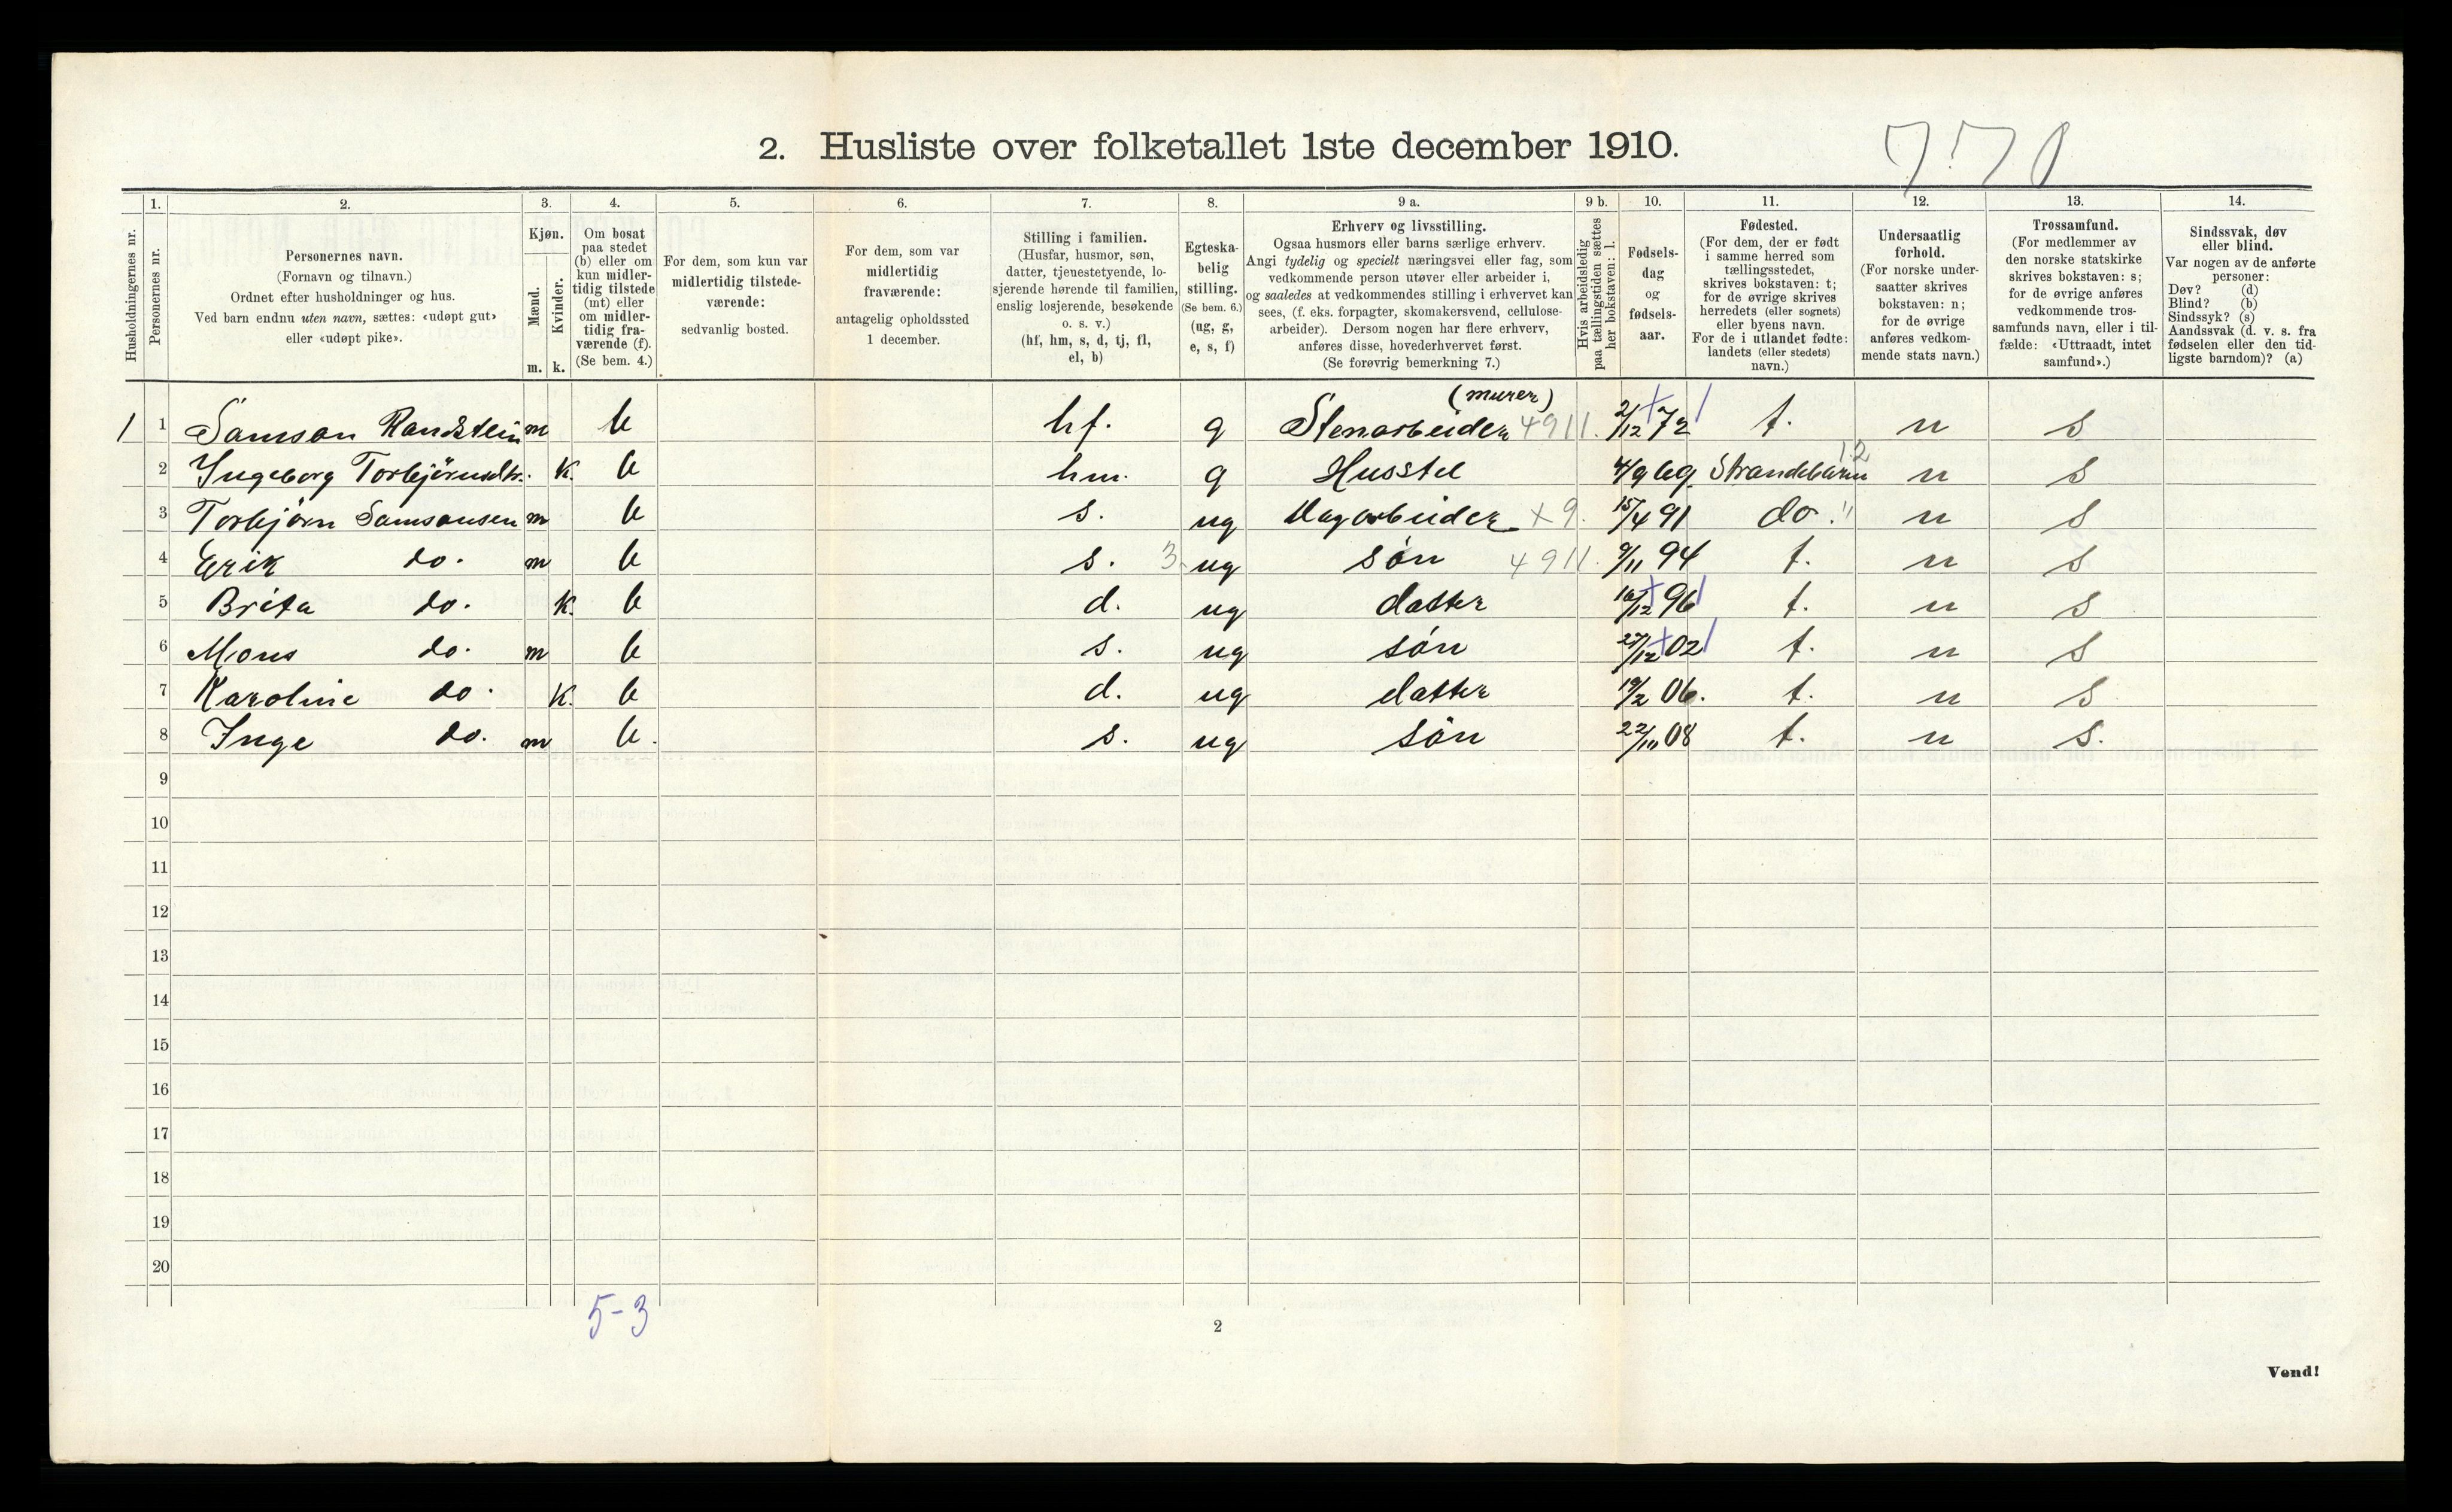 2. Husliste over folketallet 1ste december 1910.
7.70
Husholdningernes nr.
1.
Personernes nr.
2.
Personernes navn.
(Fornavn og tilnavn.)
Ordnet efter husholdninger og hus.
Ved barn endnu uten navn, sættes: «udøpt gut»
eller «udøpt pike».
3.
Kjøn.
Mænd.
Kvinder.
m. k.
4.
Om bosat
paa stedet
(b) eller om
kun midler-
tidig tilstede
(mt) eller
om midler-
tidig fra-
værende (f).
(Se bem. 4.)
5.
For dem, som kun var
midlertidig tilstede-
værende:
sedvanlig bosted.
6.
For dem, som var
midlertidig
fraværende:
antagelig opholdssted
1 december.
7.
Stilling i familien.
(Husfar, husmor, søn,
datter, tjenestetyende, lo-
sjerende hørende til familien,
enslig losjerende, besøkende
o. s. v.)
(hf, hm, s, d, tj, fl,
el, b)
8.
Egteska-
belig
stilling.
(Se bem. 6.)
(ug, g,
e, s, f)
9 a.
Erhverv og livsstilling.
Ogsaa husmors eller barns særlige erhverv.
Angi tydelig og specielt næringsvei eller fag, som
vedkommende person utøver eller arbeider i,
og saaledes at vedkommendes stilling i erhvervet kan
sees, (f. eks. forpagter, skomakersvend, cellulose-
arbeider). Dersom nogen har flere erhverv,
anføres disse, hovederhvervet først.
(Se forøvrig bemerkning 7.)
9 b.
Hvis arbeidsledig
paa tællingstiden sættes
her bokstaven: l.
10.
Fødsels-
dag
og
fødsels-
aar.
11.
Fødested.
(For dem, der er født
i samme herred som
tællingsstedet,
skrives bokstaven: t;
for de øvrige skrives
herredets (eller sognets)
eller byens navn.
For de i utlandet fødte:
landets (eller stedets)
navn.)
12.
Undersaatlig
forhold.
(For norske under-
saatter skrives
bokstaven: n;
for de øvrige
anføres vedkom-
mende stats navn.)
13.
Trossamfund.
(For medlemmer av
den norske statskirke
skrives bokstaven: s;
for de øvrige anføres
vedkommende tros-
samfunds navn, eller i til-
fælde: «Uttraadt, intet
samfund».)
14.
Sindssvak, døv
eller blind.
Var nogen av de anførte
personer:
Døv? (d)
Blind? (b)
Sindssyk? (s)
Aandssvak (d. v. s. fra
fødselen eller den tid-
ligste barndom)? (a)
1 1 Samson Randstein m b hf. g Stenarbeider (murer) 4911. 2/12 72 t. n s
2 Ingeborg Torbjörnsdtr. k. b hm. g Husstel 4/9 69 Strandebarm 12 n s
3 Torbjörn Samsonsen m b s. ug Dagarbeider x9. 15/4 91 do. " n s
4 Erik do. m b s. 3 ug sön 4911. 9/11 94 t. n s
5 Brita do. k. b d. ug datter 16/12 96 t. n s
6 Mons do. m b s. ug sön 27/12 02 t. n s
7 Karoline do. k. b d. ug datter 19/2 06. t. n s
8 Inge do. m b. s. ug sön 22/10 08 t. n s.
9
10
11
12
13
14
15
16
17
18
19
20
5-3
2
Vend!